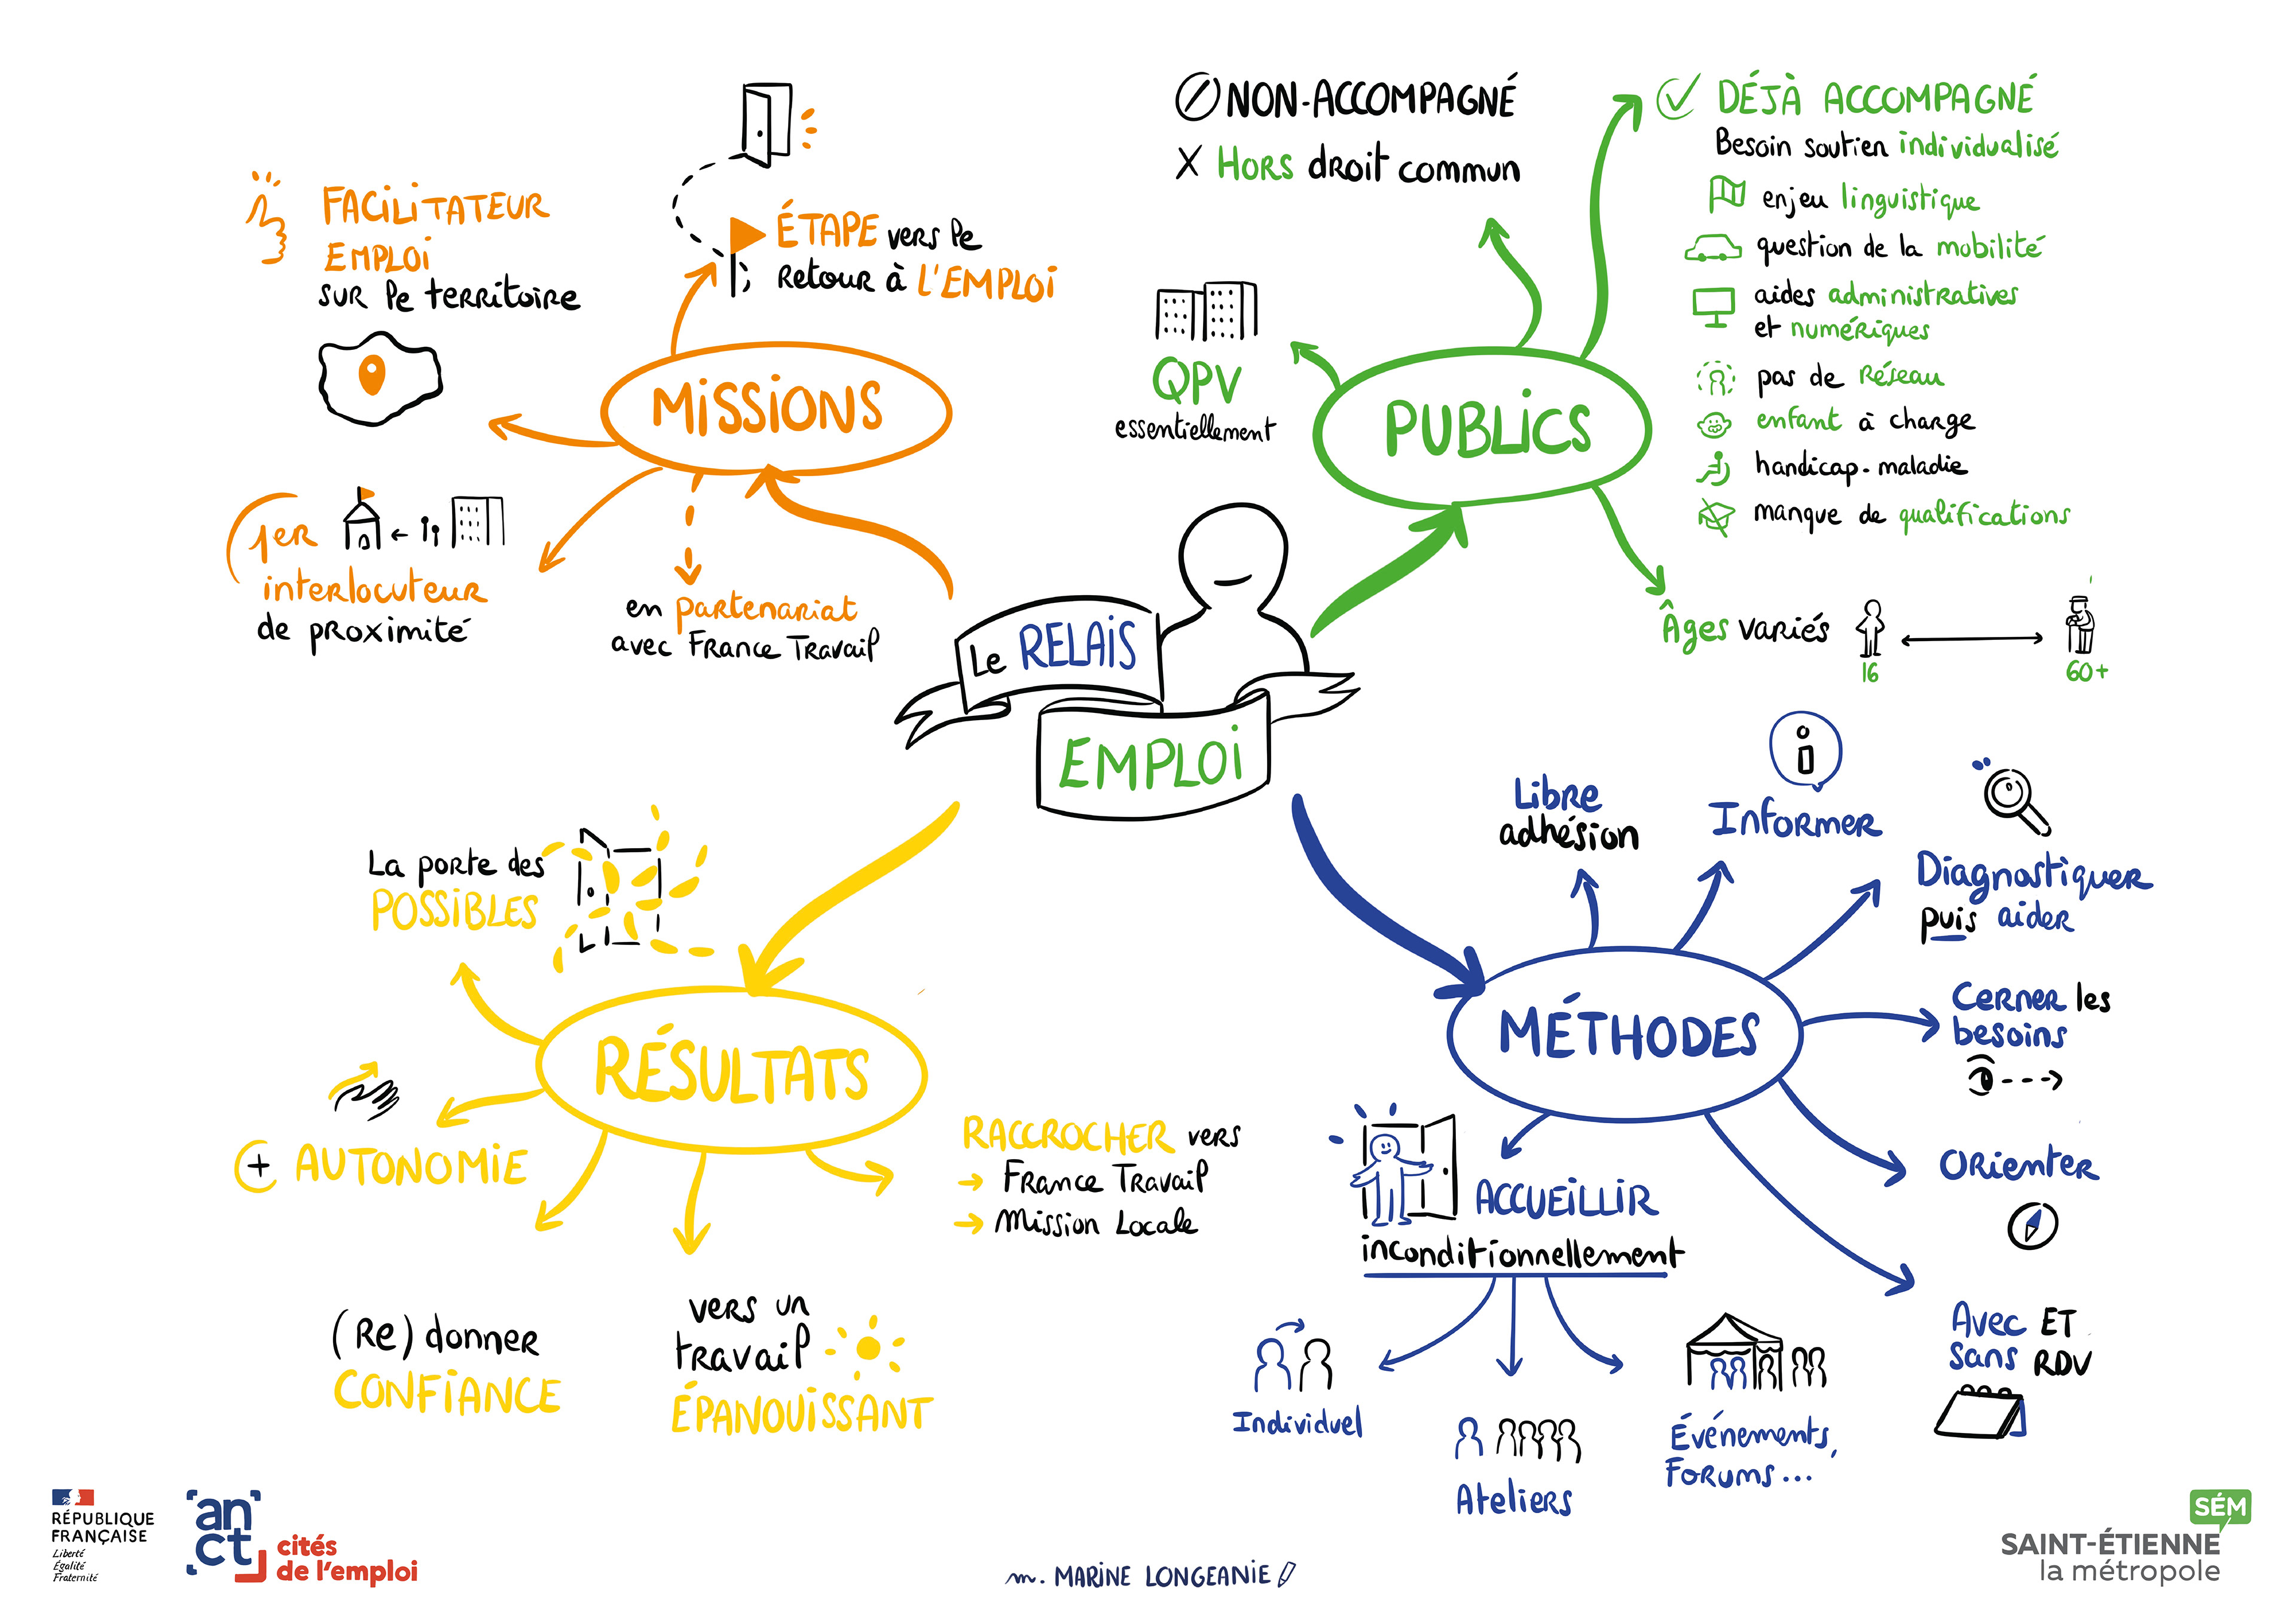 Le RELAIS
EMPLOI
MISSIONS
FACILITATEUR
EMPLOI
sur le territoire
ÉTAPE vers le
retour à L'EMPLOI
1er
interlocuteur
de proximité
en partenariat
avec France Travail
PUBLICS
NON-ACCOMPAGNÉ
X HORS droit commun
QPV
essentiellement
DÉJÀ ACCOMPAGNÉ
Besoin soutien individualisé
enjeu linguistique
question de la mobilité
aides administratives
et numériques
pas de réseau
enfant à charge
handicap-maladie
manque de qualifications
Âges variés
16
60+
RÉSULTATS
La porte des
POSSIBLES
+ AUTONOMIE
(Re) donner
CONFIANCE
vers un
travail
ÉPANOUISSANT
RACCROCHER vers
→ France Travail
→ Mission Locale
MÉTHODES
Libre
adhésion
i
Informer
Diagnostiquer
puis aider
Cerner les
besoins
Orienter
Avec ET
sans RDV
ACCUEILLIR
inconditionnellement
Individuel
Ateliers
Événements,
Forums...
RÉPUBLIQUE
FRANÇAISE
Liberté
Égalité
Fraternité
anct
cités
de l'emploi
m. MARINE LONGEANIE
SÉM
SAINT-ÉTIENNE
la métropole